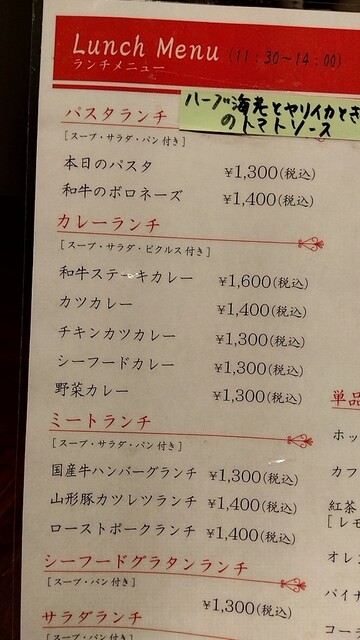 Lunch Menu (11:30~14:00)
ランチメニュー
ハーブ海老とヤリイカとき
のトマトソース
パスタランチ
[スープ・サラダ・パン付き]
本日のパスタ ¥1,300(税込)
和牛のボロネーズ ¥1,400(税込)
カレーランチ
[スープ・サラダ・ピクルス付き]
和牛ステーキカレー ¥1,600(税込)
カツカレー ¥1,400(税込)
チキンカツカレー ¥1,300(税込)
シーフードカレー ¥1,300(税込)
野菜カレー ¥1,300(税込)
ミートランチ
[スープ・サラダ・パン付き]
国産牛ハンバーグランチ ¥1,300(税込)
山形豚カツレツランチ ¥1,400(税込)
ローストポークランチ ¥1,400(税込)
シーフードグラタンランチ
[スープ・パン付き]
¥1,300(税込)
サラダランチ
[スープ・パン付き]
単品
ホッ
カフ
紅茶
[レモ
オレン
パイナ
コー